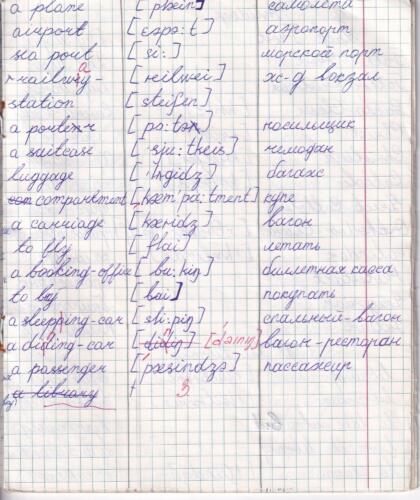 a plane [plæin] самолёта
airport [ɛəpɔ:t] аэропорт
sea port [si:] морской порт
railway- [reilwei] ж-д вокзал
station [steiʃen]
a porter [pɔ:tə] носильщик
a suitcase ['sju:theis] чемодан
luggage ['lʌgidʒ] багаж
compartment [kəm'pa:tment] купе
a carriage ['kæridʒ] вагон
to fly [flai] летать
a booking-office [bu:kiŋ] билетная касса
to buy [bai] покупать
a sleeping-car [sli:piŋ] спальный-вагон
a dining-car [dainiŋ] вагон-ресторан
a passenger ['pæsindʒə] пассажир
a library
3